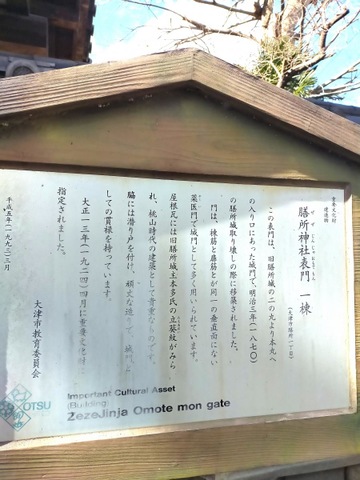 重要文化財
建造物
膳所神社表門 一棟
ぜぜじんじゃおもてもん
(大津市膳所一丁目)
この表門は、旧膳所城の二の丸より本丸へ
の入り口にあった城門で、明治三年(一八七〇)
の膳所城取り壊しの際に移築されました。
門は、棟筋と扉筋とが同一の垂直面にない
薬医門で城門として多く用いられています。
屋根瓦には旧膳所城主本多氏の立葵紋がみら
れ、桃山時代の建築として貴重なものです。
脇には潜り戸を付け、頑丈な造りで、城門と
しての貫禄を持っています。
大正一三年(一九二四)四月に重要文化財に
指定されました。
平成五年(一九九三)三月
大津市教育委員会
OTSU
Important Cultural Asset
(Building)
ZezeJinja Omote mon gate